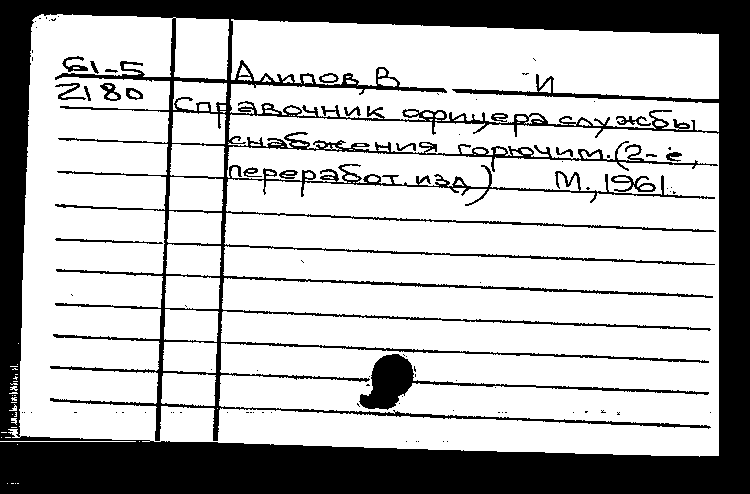 61-5 Алипов, В И
2180 Справочник офицера службы
снабжения горючим. (2-е,
переработ. изд) М., 1961.